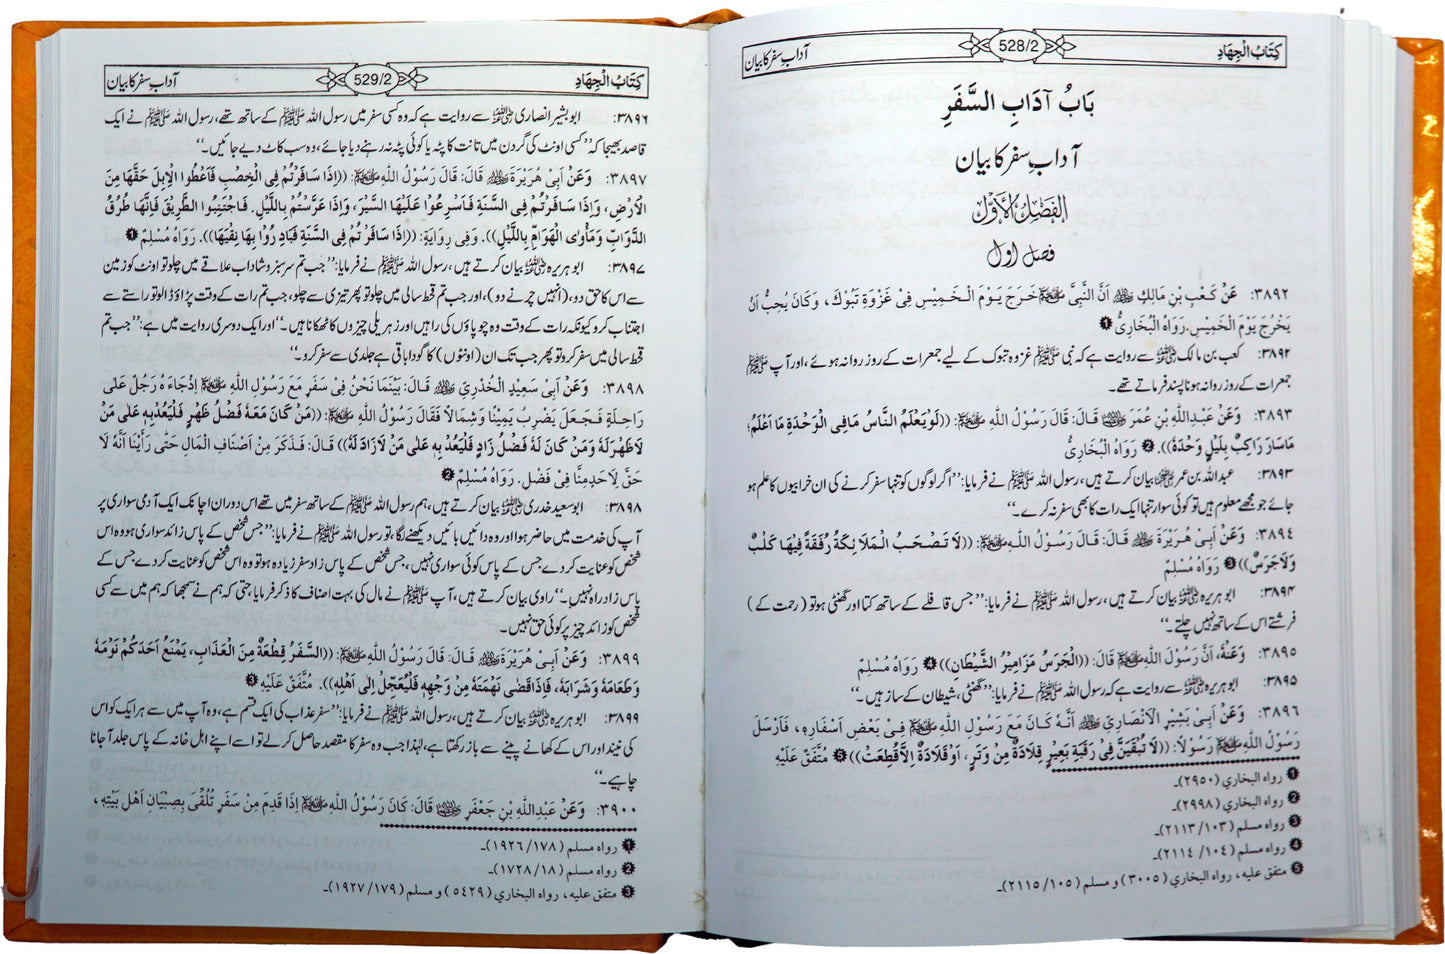 کِتَابُ الْجِهَادِ
528/2
آدابِ سفر کا بیان
بَابُ آدَابِ السَّفَرِ
آدابِ سفر کا بیان
الفَصْلُ الْأَوَّلُ
فصل اول
٣٨٩٢: عَنْ كَعْبِ بْنِ مَالِكٍ ﷜ أَنَّ النَّبِيَّ ﷺ خَرَجَ يَوْمَ الْخَمِيْسِ فِيْ غَزْوَةِ تَبُوْكَ، وَكَانَ يُحِبُّ أَنْ
يَخْرُجَ يَوْمَ الْخَمِيْسِ. رَوَاهُ الْبُخَارِيُّ ❶
٣٨٩٢: کعب بن مالک ﷜ سے روایت ہے کہ نبی ﷺ غزوہ تبوک کے لیے جمعرات کے روز روانہ ہوئے، اور آپ ﷺ
جمعرات کے روز روانہ ہونا پسند فرماتے تھے۔
٣٨٩٣: وَعَنْ عَبْدِاللّٰهِ بْنِ عُمَرَ قَالَ: قَالَ رَسُوْلُ اللّٰهِ ﷺ: ((لَوْ يَعْلَمُ النَّاسُ مَا فِي الْوَحْدَةِ مَا أَعْلَمُ؛
مَا سَارَ رَاكِبٌ بِلَيْلٍ وَحْدَهُ)). ❷ رَوَاهُ الْبُخَارِيُّ
٣٨٩٣: عبداللہ بن عمر بیان کرتے ہیں، رسول اللہ ﷺ نے فرمایا: ’’اگر لوگوں کو تنہا سفر کرنے کی ان خرابیوں کا علم ہو
جائے جو مجھے معلوم ہیں تو کوئی سوار تنہا ایک رات کا بھی سفر نہ کرے۔‘‘
٣٨٩٤: وَعَنْ أَبِيْ هُرَيْرَةَ ﷜ قَالَ: قَالَ رَسُوْلُ اللّٰهِ ﷺ: ((لَا تَصْحَبُ الْمَلَائِكَةُ رُفْقَةً فِيْهَا كَلْبٌ
وَلَا جَرَسٌ)) ❸ رَوَاهُ مُسْلِمٌ
٣٨٩٤: ابو ہریرہ ﷜ بیان کرتے ہیں، رسول اللہ ﷺ نے فرمایا: ’’جس قافلے کے ساتھ کتا اور گھنٹی ہو تو (رحمت کے)
فرشتے اس کے ساتھ نہیں چلتے۔‘‘
٣٨٩٥: وَعَنْهُ، أَنَّ رَسُوْلَ اللّٰهِ ﷺ قَالَ: ((الْجَرَسُ مَزَامِيْرُ الشَّيْطَانِ)) ❹ رَوَاهُ مُسْلِمٌ
٣٨٩٥: ابو ہریرہ ﷜ سے روایت ہے کہ رسول اللہ ﷺ نے فرمایا: ’’گھنٹی، شیطان کے ساز ہیں۔‘‘
٣٨٩٦: وَعَنْ أَبِيْ بَشِيْرٍ الْأَنْصَارِيِّ ﷜ أَنَّهُ كَانَ مَعَ رَسُوْلِ اللّٰهِ ﷺ فِيْ بَعْضِ أَسْفَارِهِ، فَأَرْسَلَ
رَسُوْلُ اللّٰهِ ﷺ رَسُوْلًا: ((لَا تُبْقَيَنَّ فِيْ رَقَبَةِ بَعِيْرٍ قِلَادَةٌ مِنْ وَتَرٍ، أَوْ قِلَادَةٌ إِلَّا قُطِعَتْ)) ❺ مُتَّفَقٌ عَلَيْهِ
❶ رواه البخاري (٢٩٥٠)۔
❷ رواه البخاري (٢٩٩٨)۔
❸ رواه مسلم (١٠٣/ ٢١١٣)۔
❹ رواه مسلم (١٠٤/ ٢١١٤)۔
❺ متفق عليه، رواه البخاري (٣٠٠٥) و مسلم (١٠٥/ ٢١١٥)۔
کِتَابُ الْجِهَادِ
529/2
آدابِ سفر کا بیان
٣٨٩٦: ابو بشیر انصاری ﷜ سے روایت ہے کہ وہ کسی سفر میں رسول اللہ ﷺ کے ساتھ تھے، رسول اللہ ﷺ نے ایک
قاصد بھیجا کہ ’’کسی اونٹ کی گردن میں تانت کا پٹہ یا کوئی پٹہ نہ رہنے دیا جائے، وہ سب کاٹ دیے جائیں۔‘‘
٣٨٩٧: وَعَنْ أَبِيْ هُرَيْرَةَ ﷜ قَالَ: قَالَ رَسُوْلُ اللّٰهِ ﷺ: ((إِذَا سَافَرْتُمْ فِي الْخِصْبِ فَأَعْطُوا الْإِبِلَ حَقَّهَا مِنَ
الْأَرْضِ، وَإِذَا سَافَرْتُمْ فِي السَّنَةِ فَأَسْرِعُوْا عَلَيْهَا السَّيْرَ، وَإِذَا عَرَّسْتُمْ بِاللَّيْلِ. فَاجْتَنِبُوا الطَّرِيْقَ فَإِنَّهَا طُرُقُ
الدَّوَابِّ وَمَأْوَى الْهَوَامِّ بِاللَّيْلِ)). وَفِيْ رِوَايَةٍ: ((إِذَا سَافَرْتُمْ فِي السَّنَةِ فَبَادِرُوْا بِهَا نِقْيَهَا)). رَوَاهُ مُسْلِمٌ ❶
٣٨٩٧: ابو ہریرہ ﷜ بیان کرتے ہیں، رسول اللہ ﷺ نے فرمایا: ’’جب تم سرسبز و شاداب علاقے میں چلو تو اونٹ کو زمین
سے اس کا حق دو، (انہیں چرنے دو)، اور جب تم قحط سالی میں چلو تو پھر تیزی سے چلو، جب تم رات کے وقت پڑاؤ ڈالو تو راستے سے
اجتناب کرو کیونکہ رات کے وقت وہ چوپاؤں کی راہیں اور زہریلی چیزوں کا ٹھکانا ہیں۔‘‘ اور ایک دوسری روایت میں ہے: ’’جب تم
قحط سالی میں سفر کرو تو پھر جب تک ان (اونٹوں) کا گودا باقی ہے جلدی سے سفر کرو۔‘‘
٣٨٩٨: وَعَنْ أَبِيْ سَعِيْدٍ الْخُدْرِيِّ ﷜ قَالَ: بَيْنَمَا نَحْنُ فِيْ سَفَرٍ مَعَ رَسُوْلِ اللّٰهِ ﷺ إِذْ جَاءَهُ رَجُلٌ عَلَى
رَاحِلَةٍ فَجَعَلَ يَضْرِبُ يَمِيْنًا وَشِمَالًا فَقَالَ رَسُوْلُ اللّٰهِ ﷺ: ((مَنْ كَانَ مَعَهُ فَضْلُ ظَهْرٍ فَلْيَعُدْ بِهِ عَلَى مَنْ
لَا ظَهْرَ لَهُ وَمَنْ كَانَ لَهُ فَضْلُ زَادٍ فَلْيَعُدْ بِهِ عَلَى مَنْ لَا زَادَ لَهُ)) قَالَ: فَذَكَرَ مِنْ أَصْنَافِ الْمَالِ حَتَّى رَأَيْنَا أَنَّهُ لَا
حَقَّ لِأَحَدٍ مِنَّا فِيْ فَضْلٍ. رَوَاهُ مُسْلِمٌ ❷
٣٨٩٨: ابو سعید خدری ﷜ بیان کرتے ہیں، ہم رسول اللہ ﷺ کے ساتھ سفر میں تھے اس دوران اچانک ایک آدمی سواری پر
آپ کی خدمت میں حاضر ہوا اور وہ دائیں بائیں دیکھنے لگا، تو رسول اللہ ﷺ نے فرمایا: ’’جس شخص کے پاس زائد سواری ہو وہ اس
شخص کو عنایت کر دے جس کے پاس کوئی سواری نہیں، جس شخص کے پاس زادِ سفر زیادہ ہو تو وہ اس شخص کو عنایت کر دے جس کے
پاس زادِ راہ نہیں۔‘‘ راوی بیان کرتے ہیں، آپ ﷺ نے مال کی بہت اصناف کا ذکر فرمایا، حتیٰ کہ ہم نے سمجھا کہ ہم میں سے کسی
شخص کو زائد چیز پر کوئی حق نہیں۔
٣٨٩٩: وَعَنْ أَبِيْ هُرَيْرَةَ ﷜ قَالَ: قَالَ رَسُوْلُ اللّٰهِ ﷺ: ((السَّفَرُ قِطْعَةٌ مِنَ الْعَذَابِ، يَمْنَعُ أَحَدَكُمْ نَوْمَهُ
وَطَعَامَهُ وَشَرَابَهُ، فَإِذَا قَضَى نَهْمَتَهُ مِنْ وَجْهِهِ فَلْيُعَجِّلْ إِلَى أَهْلِهِ)). مُتَّفَقٌ عَلَيْهِ ❸
٣٨٩٩: ابو ہریرہ ﷜ بیان کرتے ہیں، رسول اللہ ﷺ نے فرمایا: ’’سفر عذاب کی ایک قسم ہے، وہ آپ میں سے ہر ایک کو اس
کی نیند اور اس کے کھانے پینے سے باز رکھتا ہے، لہٰذا جب وہ سفر کا مقصد حاصل کر لے تو اسے اپنے اہل خانہ کے پاس جلد آ جانا
چاہیے۔‘‘
٣٩٠٠: وَعَنْ عَبْدِاللّٰهِ بْنِ جَعْفَرٍ ﷜ قَالَ: كَانَ رَسُوْلُ اللّٰهِ ﷺ إِذَا قَدِمَ مِنْ سَفَرٍ تُلُقِّيَ بِصِبْيَانِ أَهْلِ بَيْتِهِ،
❶ رواه مسلم (١٧٨/ ١٩٢٦)۔
❷ رواه مسلم (١٨/ ١٧٢٨)۔
❸ متفق عليه، رواه البخاري (٥٤٢٩) و مسلم (١٧٩/ ١٩٢٧)۔